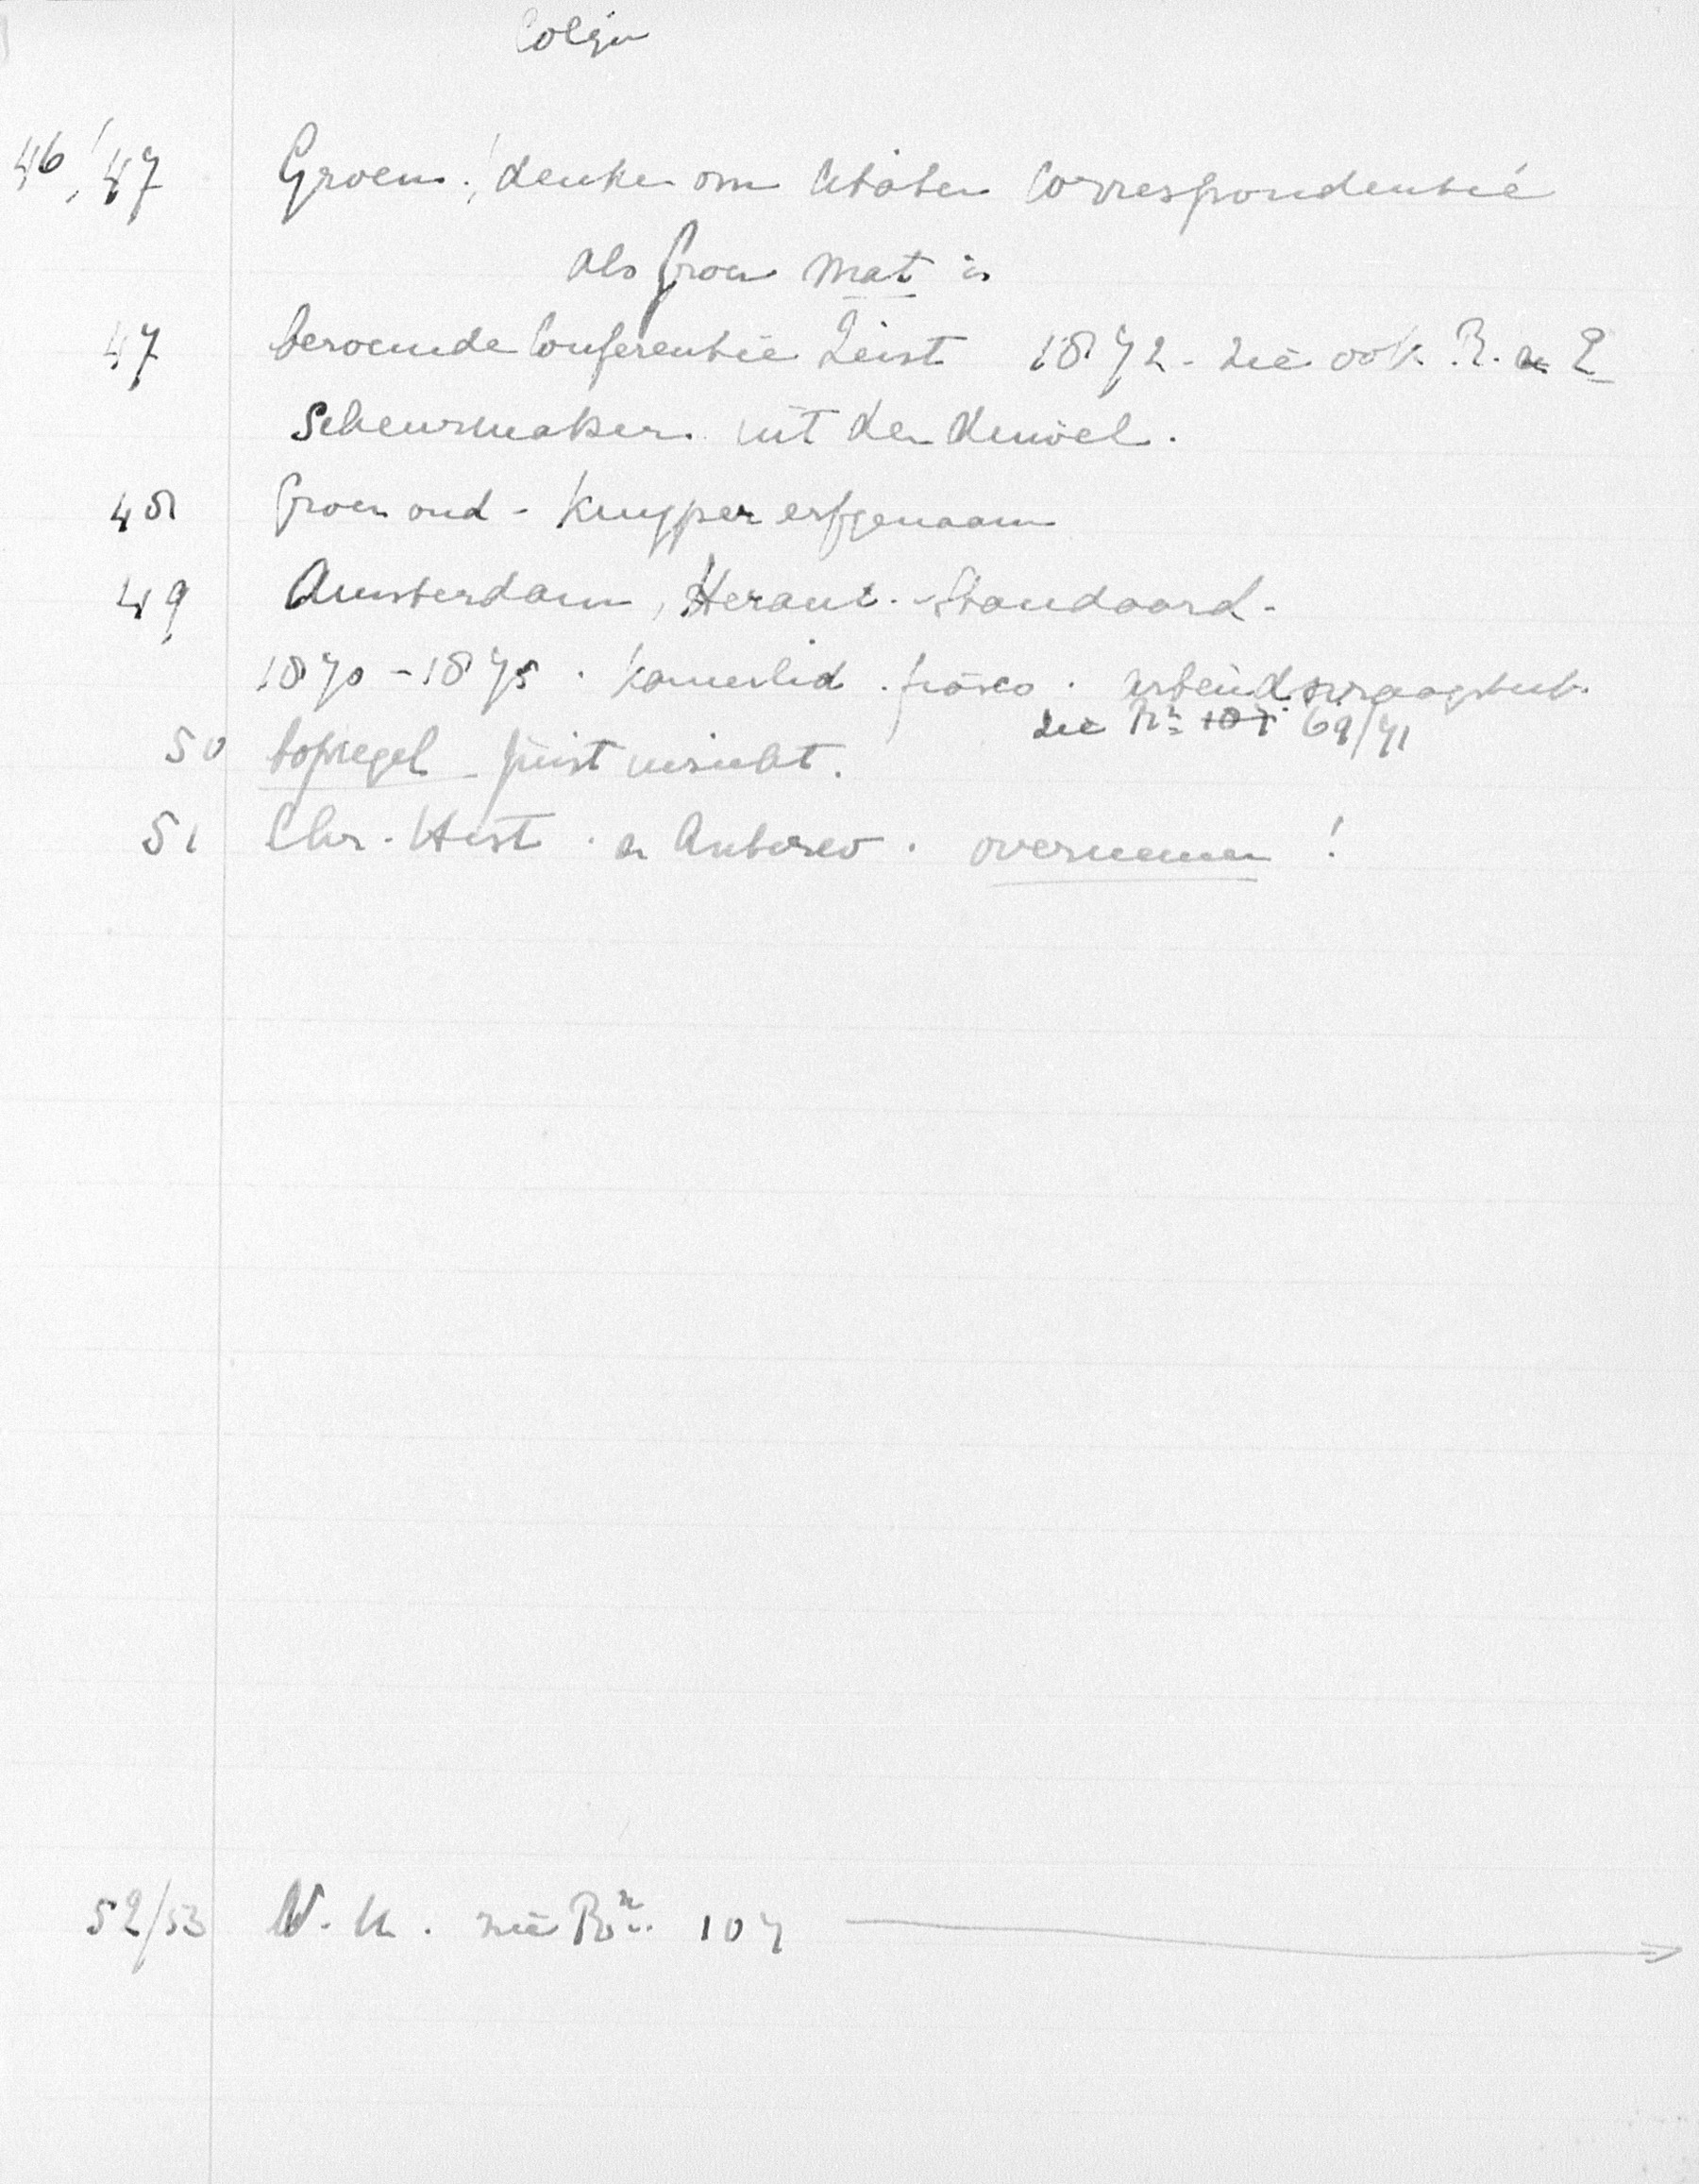 Colijn
46, 47 Groen. denken om citaten Correspondentie
als Groen mat is
47 beroemde Conferentie Zeist 1872 - zie ook R. en E
Scheurmaker uit den duivel.
48 Groen oud - Kuyper erfgenaam
49 Amsterdam, Heraut - Standaard -
1870 - 1875 . Kamerlid . fiasco . arbeidsvraagstuk.
zie Rn 69/71
50 topregel juist
51 Chr. Hist. en Antirev. overnemen !
52/53 N. U. zie Rn 107